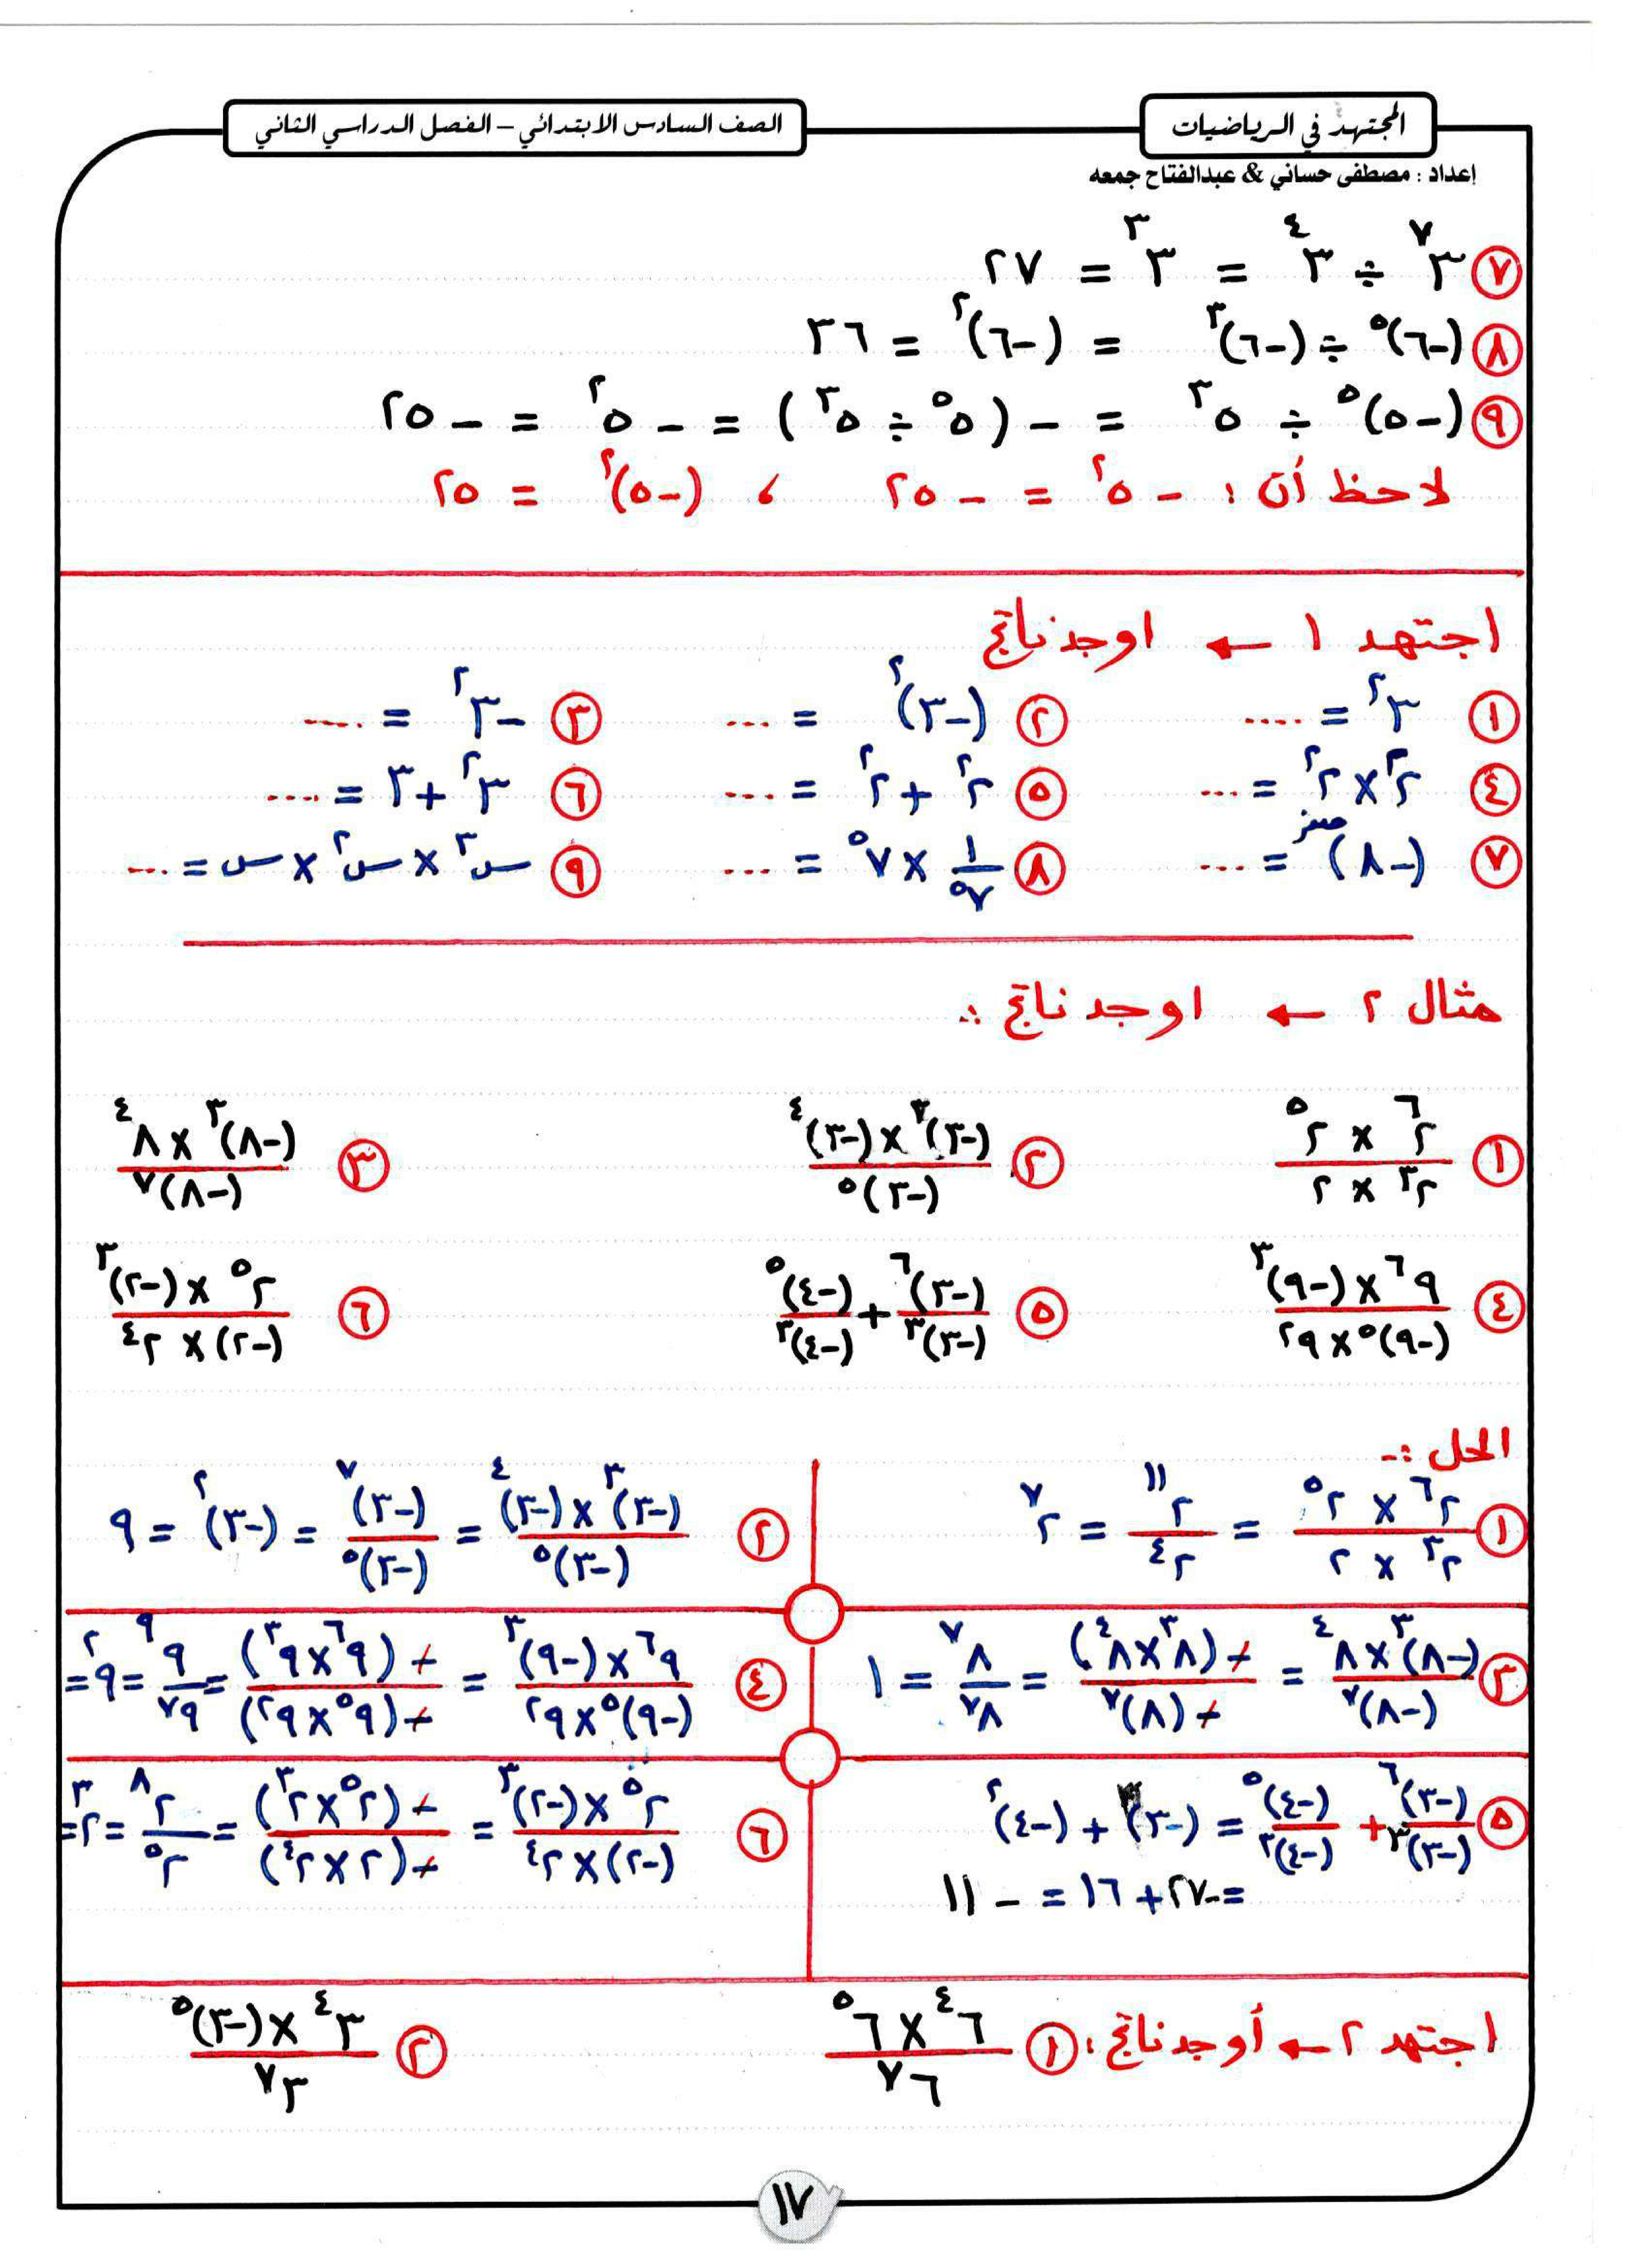 المجتهد في الرياضيات
الصف السادس الابتدائي – الفصل الدراسي الثاني
إعداد : مصطفى حساني & عبدالفتاح جمعه
⑦ ٣^٧ ÷ ٣^٤ = ٣^٣ = ٢٧
⑧ (-٦)^٥ ÷ (-٦)^٣ = (-٦)^٢ = ٣٦
⑨ (-٥)^٥ ÷ ٥^٣ = - (٥^٥ ÷ ٥^٣) = - ٥^٢ = - ٢٥
لاحظ أن : - ٥^٢ = - ٢٥ ، (-٥)^٢ = ٢٥
اجتهد ١ ← اوجد ناتج
① ٣^٢ = .... ② (-٣)^٢ = .... ③ -٣^٢ = ....
④ ٢^٣ × ٢^٢ = .... ⑤ ٢^٢ + ٢^٢ = .... ⑥ ٣^٢ + ٣ = ....
⑦ (-٨)^صفر = .... ⑧ ١/٧^٥ × ٧^٥ = .... ⑨ س^٣ × س^٢ × س = ....
مثال ٢ ← اوجد ناتج :
① (٢^٦ × ٢^٥)/(٢^٣ × ٢) ② ((-٣)^٣ × (-٣)^٤)/(-٣)^٥ ③ ((-٨)^٣ × ٨^٤)/(-٨)^٧
④ (٩^٦ × (-٩)^٣)/((-٩)^٥ × ٩^٢) ⑤ (-٣)^٦/(-٣)^٣ + (-٤)^٥/(-٤)^٣ ⑥ (٢^٥ × (-٢)^٣)/((-٢) × ٢^٤)
الحل :-
① (٢^٦ × ٢^٥)/(٢^٣ × ٢) = ٢^١١/٢^٤ = ٢^٧
② ((-٣)^٣ × (-٣)^٤)/(-٣)^٥ = (-٣)^٧/(-٣)^٥ = (-٣)^٢ = ٩
③ ((-٨)^٣ × ٨^٤)/(-٨)^٧ = -(٨^٣ × ٨^٤)/-(٨)^٧ = ٨^٧/٨^٧ = ١
④ (٩^٦ × (-٩)^٣)/((-٩)^٥ × ٩^٢) = -(٩^٦ × ٩^٣)/-(٩^٥ × ٩^٢) = ٩^٩/٩^٧ = ٩^٢ =
⑤ (-٣)^٦/(-٣)^٣ + (-٤)^٥/(-٤)^٣ = (-٣)^٣ + (-٤)^٢
= -٢٧ + ١٦ = - ١١
⑥ (٢^٥ × (-٢)^٣)/((-٢) × ٢^٤) = -(٢^٥ × ٢^٣)/-(٢ × ٢^٤) = ٢^٨/٢^٥ = ٢^٣ =
اجتهد ٢ ← أوجد ناتج : ① (٦^٤ × ٦^٥)/٦^٧ ② (٣^٤ × (-٣)^٥)/٣^٧
١٧